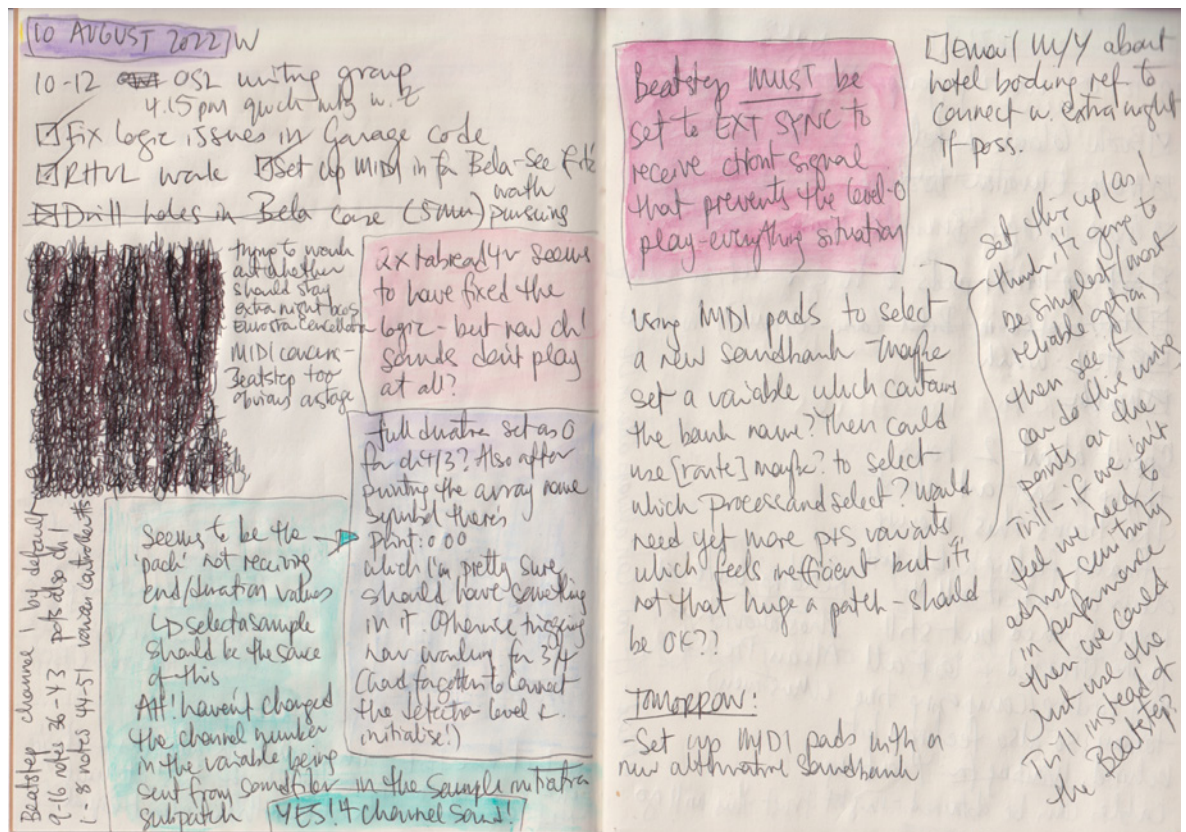 10 AUGUST 2022 W
10-12 OSL writing group
4.15pm quick mtg w. E
Fix logic issues in Garage code
RHUL work
Set up MIDI in for Bela - see if it's
worth
pursuing
Drill holes in Bela case (5mm)
trying to work
out whether
should stay
extra night bcos
Eurostar cancellation
MIDI concerns -
Beatstep too
obvious onstage
2x tabread4~ seems
to have fixed the
logic - but now ch1
sounds don't play
at all?
full duration set as 0
for ch4/3? Also after
printing the array name
symbol there's
print: 0 0 0
which I'm pretty sure
should have something
in it. Otherwise trigging
now working for 3/4
(had forgotten to connect
the detection level &
initialise!)
Seems to be the
'pack' not receiving
end/duration values
↳ selectasample
should be the source
of this
AH! haven't changed
the channel number
in the variable being
sent from soundfiler in the sample initiation
subpatch
YES! 4 channel sound!
Beatstep channel 1 by default
9-16 notes 36-43 pots also ch1
1-8 notes 44-51 various controllers
Beatstep MUST be
set to EXT SYNC to
receive signal
that prevents the level-0
play-everything situation
Email M/Y about
hotel booking ref to
connect w. extra night
if poss.
Using MIDI pads to select
a new soundbank - maybe
set a variable which contains
the bank name? Then could
use [route] maybe? to select
which processandselect? would
need yet more p+s variants,
which feels inefficient but it's
not that huge a patch - should
be OK??
Set this up (as I
think it's going to
be simplest/most
reliable option)
then see if I
can do this using
points on the
Trill - if we don't
feel we need to
adjust sensitivity
in performance
then we could
just use the
Trill instead of
the Beatstep?
TOMORROW:
- Set up MIDI pads with a
new alternative soundbank